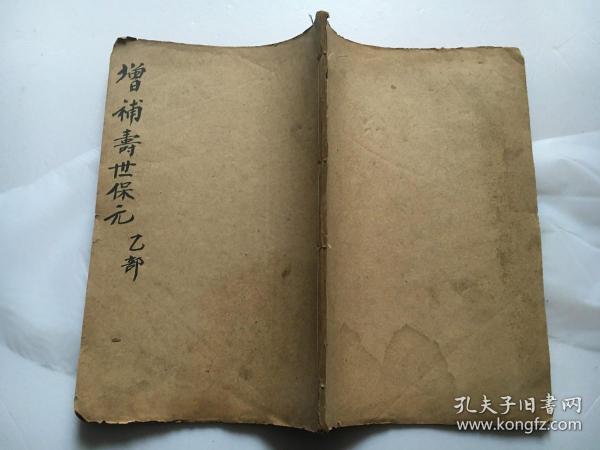 增補壽世保元
乙部
孔夫子旧书网
www.kongfz.com